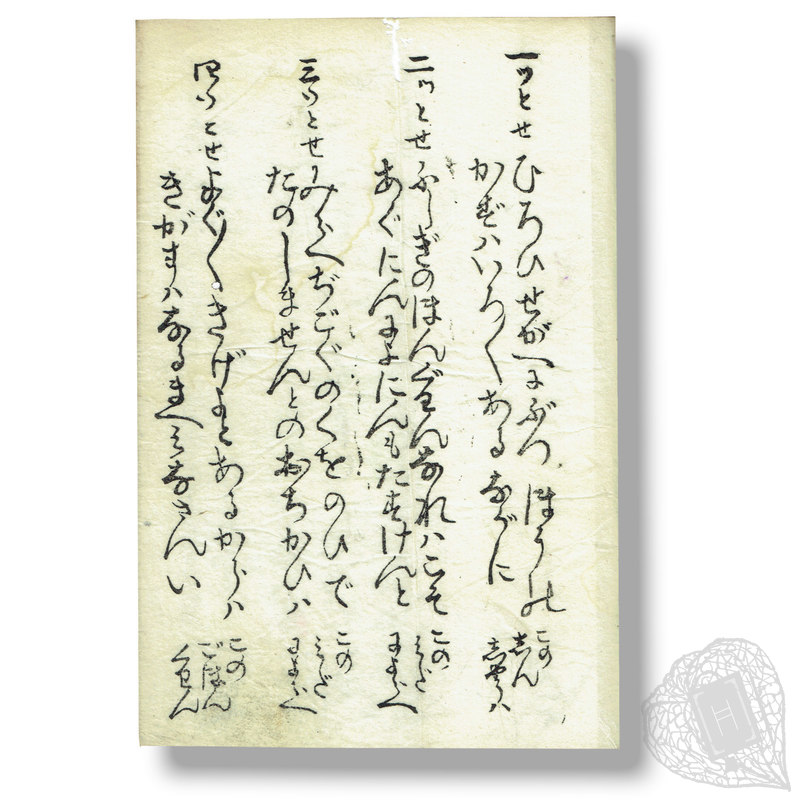 一ツとせ ひろひせがへにぶつほうの
かずハいろ〱あるなかに
このしん
しやうハ
二ツとせ ふしぎのほんぐわんなれハこそ
あくにんによにんもたすけんと
この
三ツとせ みらへぢごくのくをのひで
たのしませんとのおちかひハ
この
四ツとせ よく〱きげよとあるからハ
きがずハなるまへみなさんい
この
ごほん
くわん